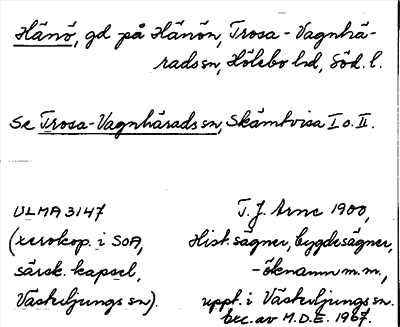 Hänö, gd på Hänön, Trosa-Vagnhä-
radssn, Hölebo hd, Söd. l.
Se Trosa-Vagnhäradssn, Skämtvisa I o. II.
ULMA 3147 T. J. Arne 1900,
(xerokop. i SOA, Hist. sägner, bygdesägner,
särsk. kapsel, -öknamn m.m.,
Västerljungs sn). uppt. i Västerljungs sn.
Exc. av M.D.E. 1967.